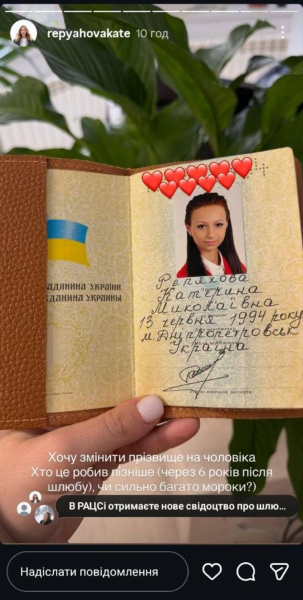 repyahovakate 10 год
АДЯНИНА УКРАЇНИ
ЖДАНИНА УКРАИНЫ
Репяхова
Катерина
Миколаївна
13 червня 1994 року
м. Дніпропетровськ
Україна
Хочу змінити прізвище на чоловіка
Хто це робив пізніше (через 6 років після
шлюбу), чи сильно багато мороки?)
В РАЦСі отримаєте нове свідоцтво про шлю...
Надіслати повідомлення